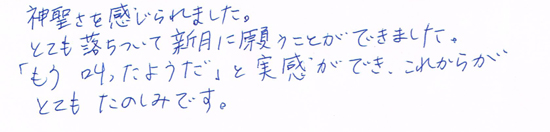 神聖さを感じられました。
とても落ちついて新月に願うことができました。
「もう叶ったようだ」と実感ができ、これからが
とてもたのしみです。